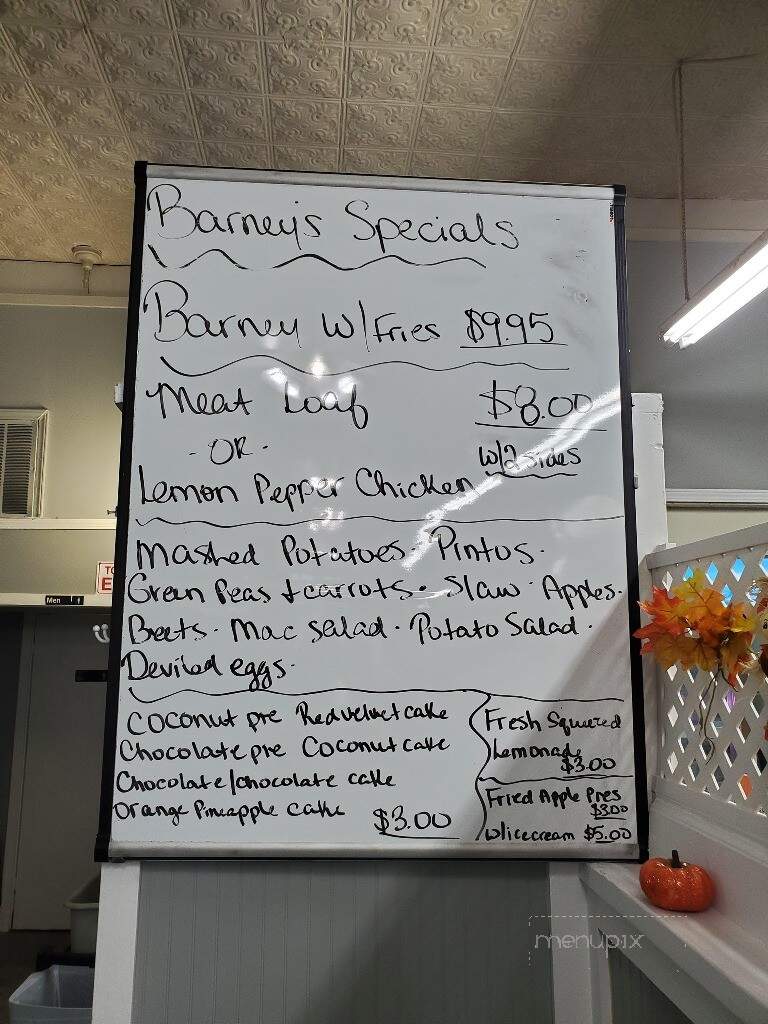 Barney's Specials
Barney W/Fries $9.95
Meat Loaf $8.00
- OR - w/2 sides
Lemon Pepper Chicken
Mashed Potatoes · Pintos ·
Green Peas + carrots · Slaw · Apples ·
Beets · Mac Salad · Potato Salad ·
Deviled eggs ·
Coconut pie Red velvet cake
Chocolate pie Coconut cake
Chocolate/chocolate cake
Orange Pineapple cake $3.00
Fresh Squeezed
Lemonade
$3.00
Fried Apple Pies
$3.00
w/icecream $5.00
Men
menupix